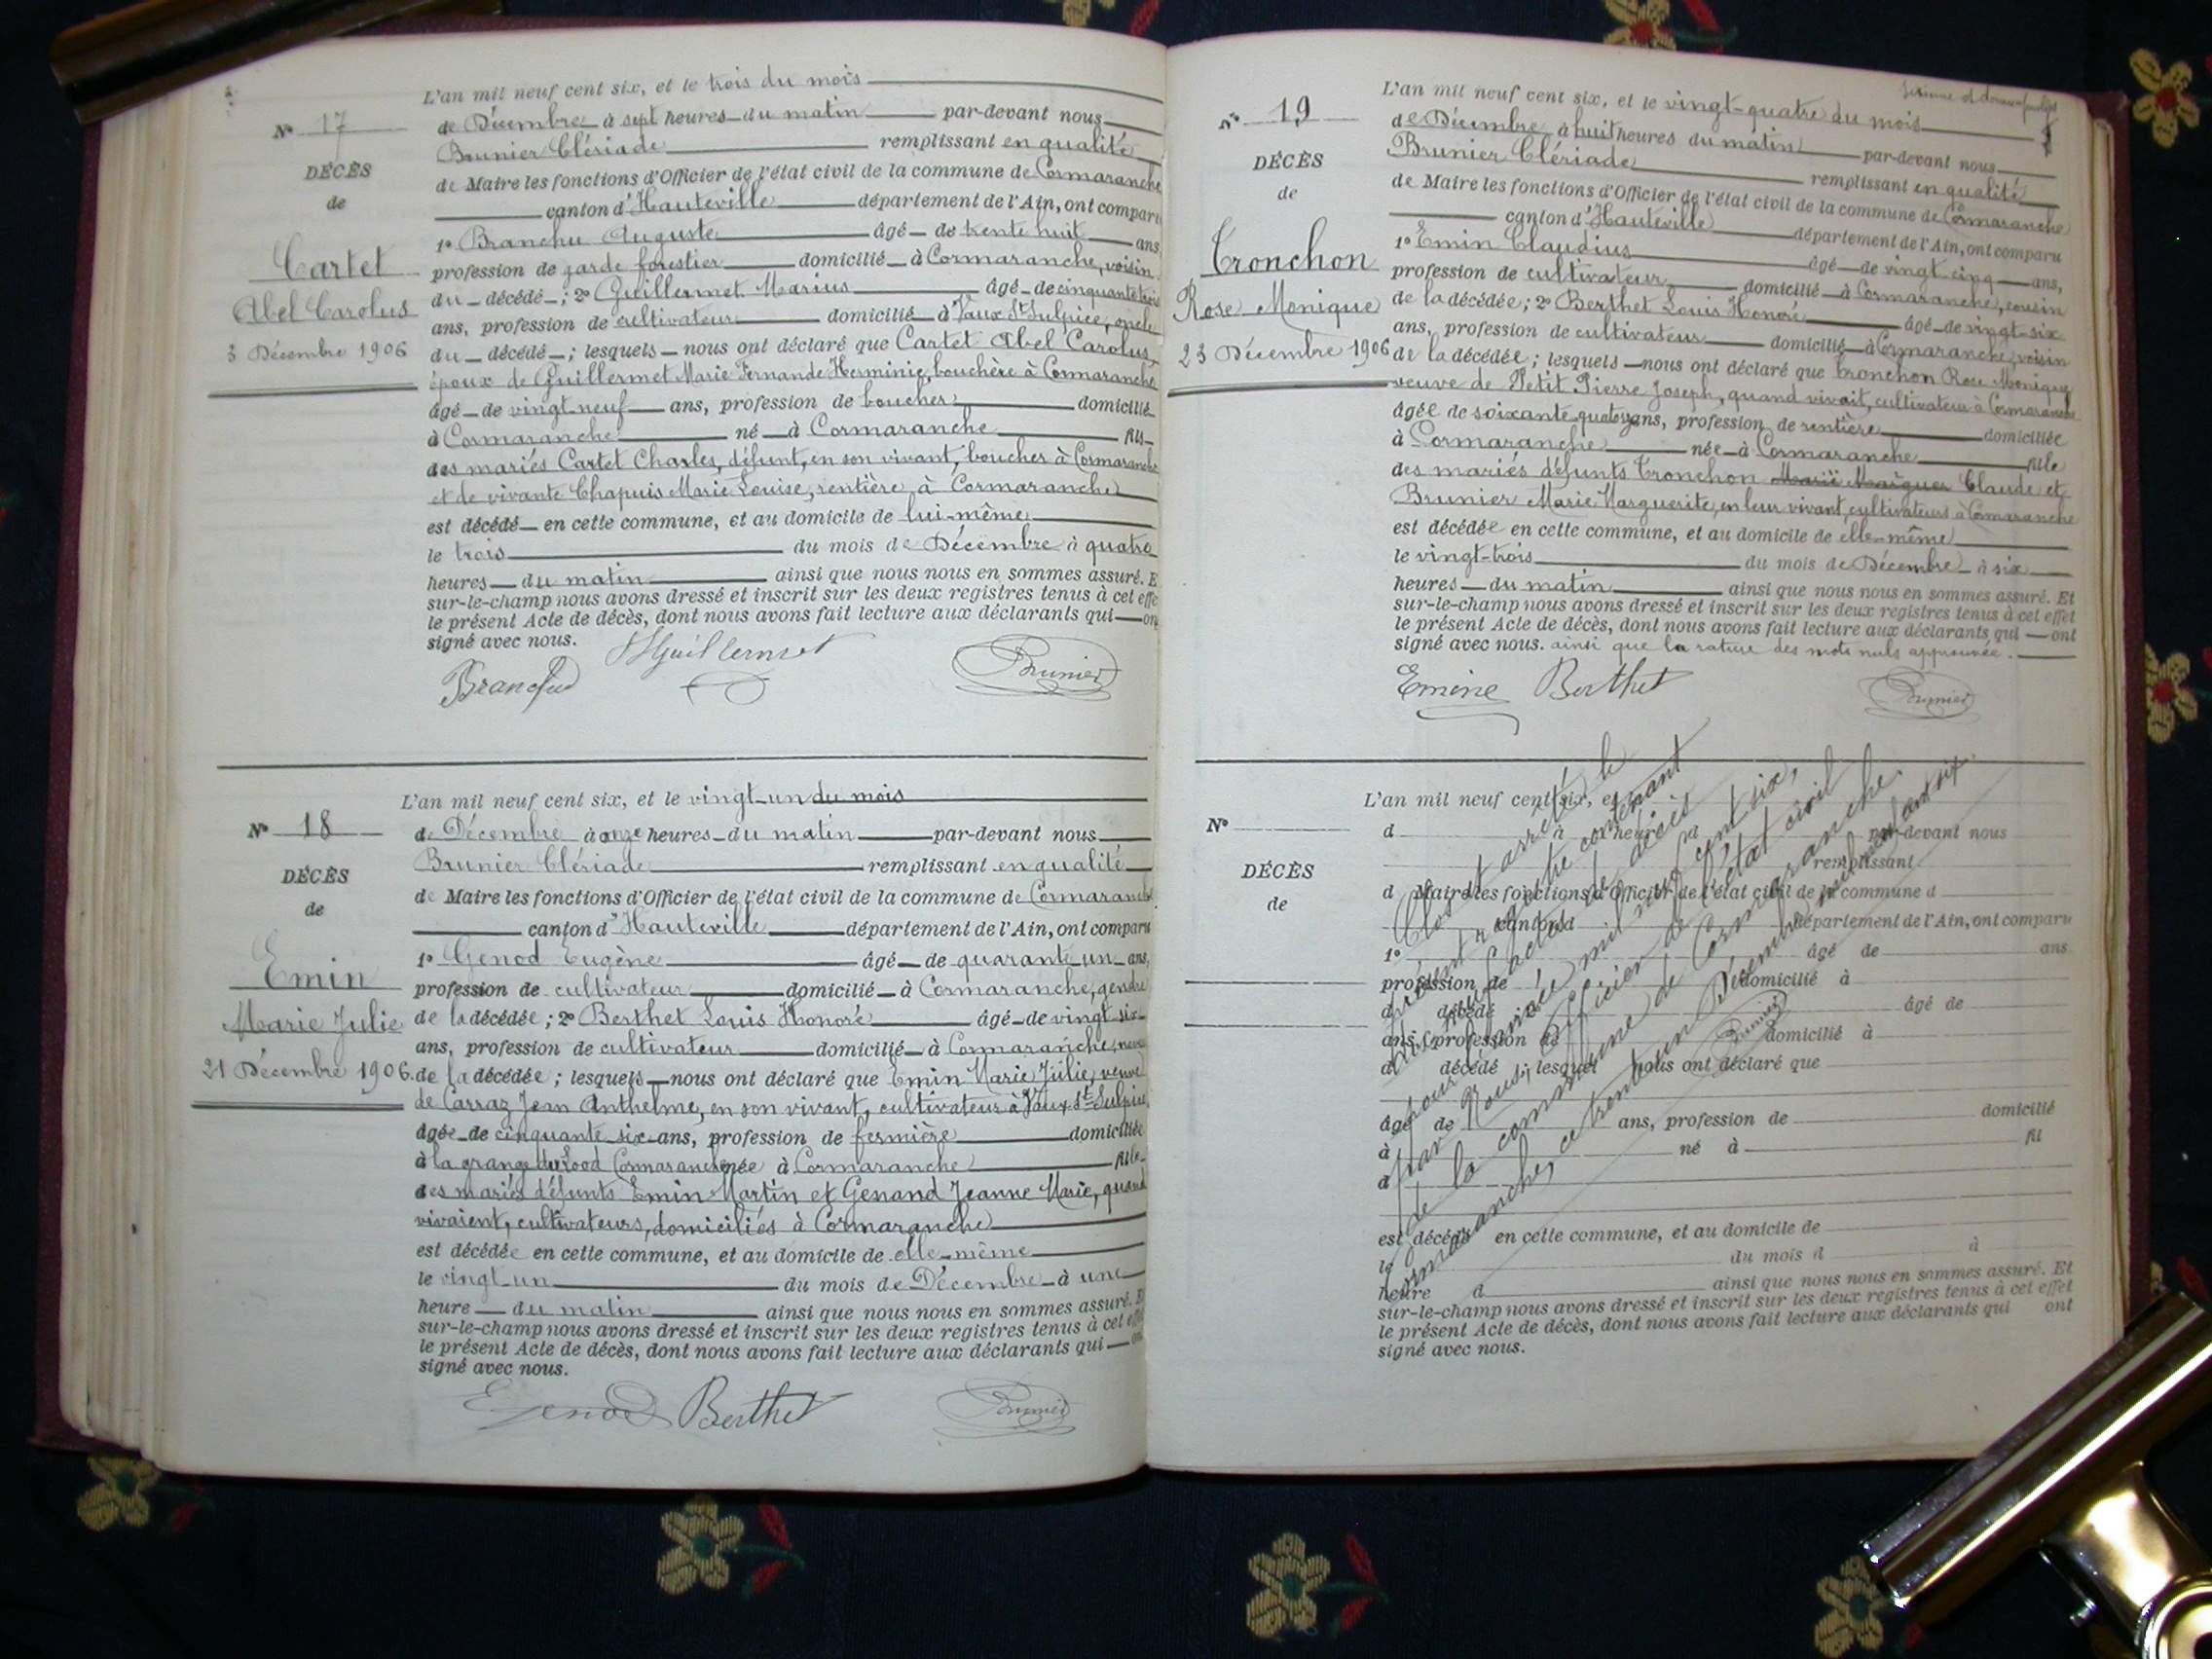 L'an mil neuf cent six, et le trois du mois
N° 17
de Décembre à sept heures du matin par-devant nous
Brunier Clériade remplissant en qualité
DÉCÈS
de Maire les fonctions d'Officier de l'état civil de la commune de Cormaranche
de
canton d'Hauteville département de l'Ain, ont comparu
1° Branchu Auguste âgé de trente huit ans
Cartet
profession de garde forestier domicilié à Cormaranche, voisin
Abel Carolus
du décédé ; 2° Guillermet Marius âgé de cinquante trois
ans, profession de cultivateur domicilié à Vaux St Sulpice, oncle
3 Décembre 1906
du décédé ; lesquels nous ont déclaré que Cartet Abel Carolus,
époux de Guillermet Marie Fernande Herminie, bouchère à Cormaranche
âgé de vingt neuf ans, profession de boucher domicilié
à Cormaranche né à Cormaranche fils
des mariés Cartet Charles, défunt, en son vivant, boucher à Cormaranche
et de vivante Chapuis Marie Louise, rentière à Cormaranche
est décédé en cette commune, et au domicile de lui-même
le trois du mois de Décembre à quatre
heures du matin ainsi que nous nous en sommes assuré. E
sur-le-champ nous avons dressé et inscrit sur les deux registres tenus à cet effe
le présent Acte de décès, dont nous avons fait lecture aux déclarants qui on
signé avec nous.
Guillermet
Branchu Brunier
L'an mil neuf cent six, et le vingt-un du mois
N° 18
de Décembre à onze heures du matin par-devant nous
Brunier Clériade remplissant en qualité
DÉCÈS
de Maire les fonctions d'Officier de l'état civil de la commune de Cormaranche
de
canton d'Hauteville département de l'Ain, ont comparu
1° Genod Eugène âgé de quarante un ans,
Emin
profession de cultivateur domicilié à Cormaranche, gendre
Marie Julie
de la décédée ; 2° Berthet Louis Honoré âgé de vingt six
ans, profession de cultivateur domicilié à Cormaranche, neveu
21 Décembre 1906.
de la décédée ; lesquels nous ont déclaré que Emin Marie Julie, veuve
de Carraz Jean Anthelme, en son vivant, cultivateur à Vaux St Sulpice,
âgée de cinquante six ans, profession de fermière domiciliée
à la grange du Cormaranche née à Cormaranche fille
des mariés défunts Emin Martin et Genand Jeanne Marie, quand
vivaient, cultivateurs, domiciliés à Cormaranche
est décédée en cette commune, et au domicile de elle-même
le vingt-un du mois de Décembre à une
heure du matin ainsi que nous nous en sommes assuré. E
sur-le-champ nous avons dressé et inscrit sur les deux registres tenus à cet effe
le présent Acte de décès, dont nous avons fait lecture aux déclarants qui
signé avec nous.
E Genod Berthet Brunier
L'an mil neuf cent six, et le vingt-quatre du mois
N° 19
de Décembre à huit heures du matin par-devant nous
Brunier Clériade remplissant en qualité
DÉCÈS
de Maire les fonctions d'Officier de l'état civil de la commune de Cormaranche
de
canton d'Hauteville département de l'Ain, ont comparu
1° Emin Claudius âgé de vingt cinq ans,
Tronchon
profession de cultivateur domicilié à Cormaranche, cousin
Rose Monique
de la décédée ; 2° Berthet Louis Honoré âgé de vingt-six
ans, profession de cultivateur domicilié à Cormaranche, voisin
23 Décembre 1906
de la décédée ; lesquels nous ont déclaré que Tronchon Rose Monique
veuve de Petit Pierre Joseph, quand vivait, cultivateur à Cormaranche
âgée de soixante-quatorze ans, profession de rentière domiciliée
à Cormaranche née à Cormaranche fille
des mariés défunts Tronchon Claude et
Brunier Marie Marguerite, en leur vivant, cultivateurs à Cormaranche
est décédée en cette commune, et au domicile de elle-même
le vingt-trois du mois de Décembre à six
heures du matin ainsi que nous nous en sommes assuré. Et
sur-le-champ nous avons dressé et inscrit sur les deux registres tenus à cet effet
le présent Acte de décès, dont nous avons fait lecture aux déclarants qui ont
signé avec nous. ainsi que la rature des mots nuls approuvée.
Emine Berthet Brunier
L'an mil neuf cent six, et
N°
d à heure d par-devant nous
remplissant
DÉCÈS
d Maire les fonctions d'Officier de l'état civil de la commune d
de
canton d département de l'Ain, ont comparu
1° âgé de ans
profession de domicilié à
d décédé âgé de
ans, profession de domicilié à
d décédé ; lesquel nous ont déclaré que
âgé de ans, profession de domicilié
à né à fil
d
est décédé en cette commune, et au domicile de
le du mois d à
heure d ainsi que nous nous en sommes assuré. Et
sur-le-champ nous avons dressé et inscrit sur les deux registres tenus à cet effet
le présent Acte de décès, dont nous avons fait lecture aux déclarants qui ont
signé avec nous.
Clos et arrêté le
présent registre contenant
dix neuf actes de décès
pour l'année mil neuf cent six,
par Nous, Officier de l'état civil
de la commune de Cormaranche.
Cormaranche, ce trente un Décembre mil neuf cent six.
Brunier